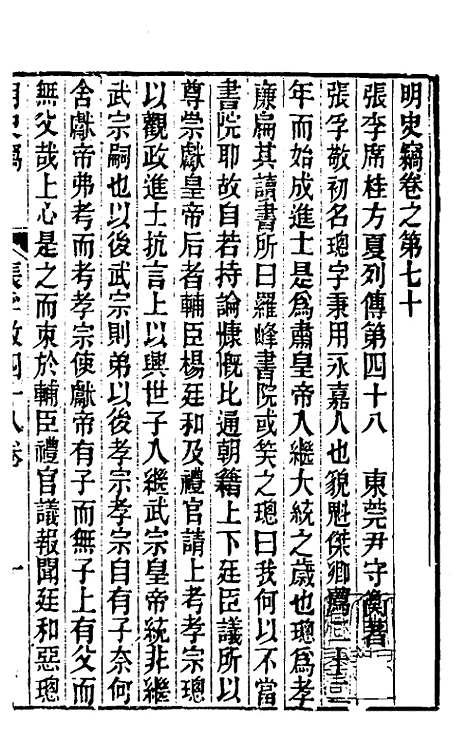 明史竊卷之第七十
張李席桂方夏列傳第四十八　東莞尹守衡著
張孚敬初名璁字秉用永嘉人也貌魁傑鄉薦二十三
年而始成進士是爲肅皇帝入繼大統之歲也璁爲孝
廉扁其讀書所曰羅峰書院或笑之璁曰我何以不當
書院耶故自若持論慷慨比通朝籍上下廷臣議所以
尊崇獻皇帝后者輔臣楊廷和及禮官請上考孝宗璁
以觀政進士抗言上以興世子入繼武宗皇帝統非繼
武宗嗣也以後武宗則弟以後孝宗孝宗自有子奈何
舍獻帝弗考而考孝宗使獻帝有子而無子上有父而
無父哉上心是之而東於輔臣禮官議報聞廷和惡璁
明史竊　張孚敬四十八卷　一